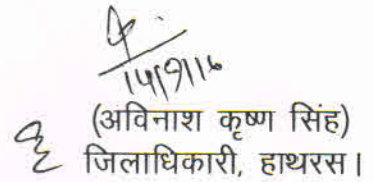 14/9/16
(अविनाश कृष्ण सिंह)
जिलाधिकारी, हाथरस।